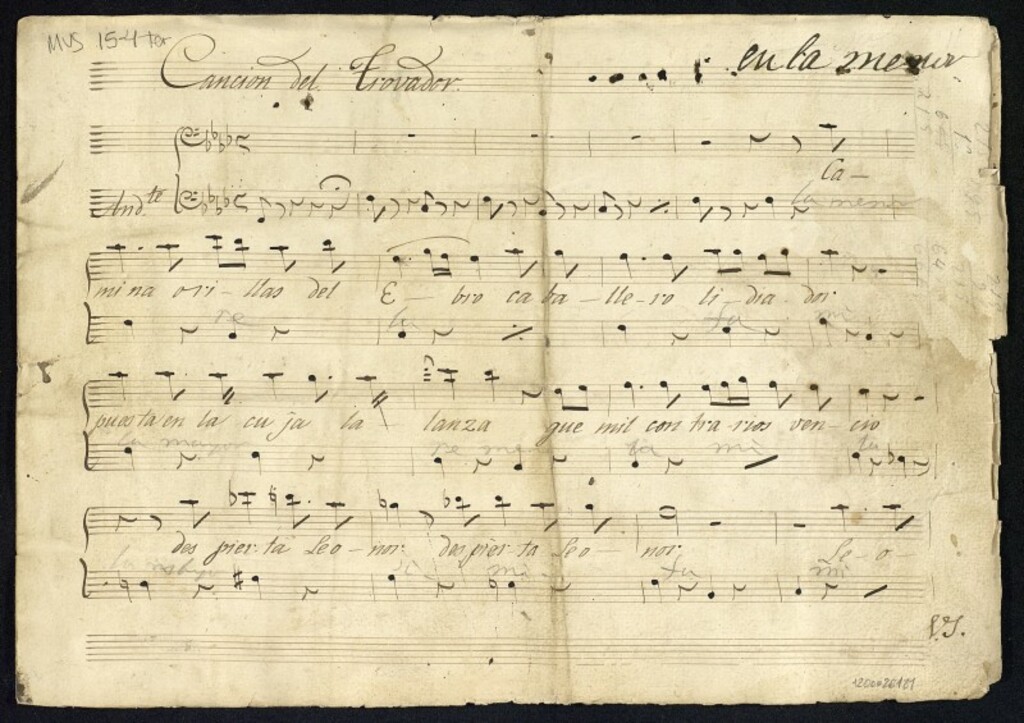 MUS 15-4 ter
Cancion del Trovador.
en la menor
Ca-
And.te
la menor
mi na o ri - llas del E - bro ca ba - lle - ro li - dia dor
re la fa mi
puesta en la cu ja la lanza que mil con tra rios ven - cio
la mayor re la mi
des pier - ta Leo - nor des pier - ta Leo - nor Le - o
mi fa mi
V.S.